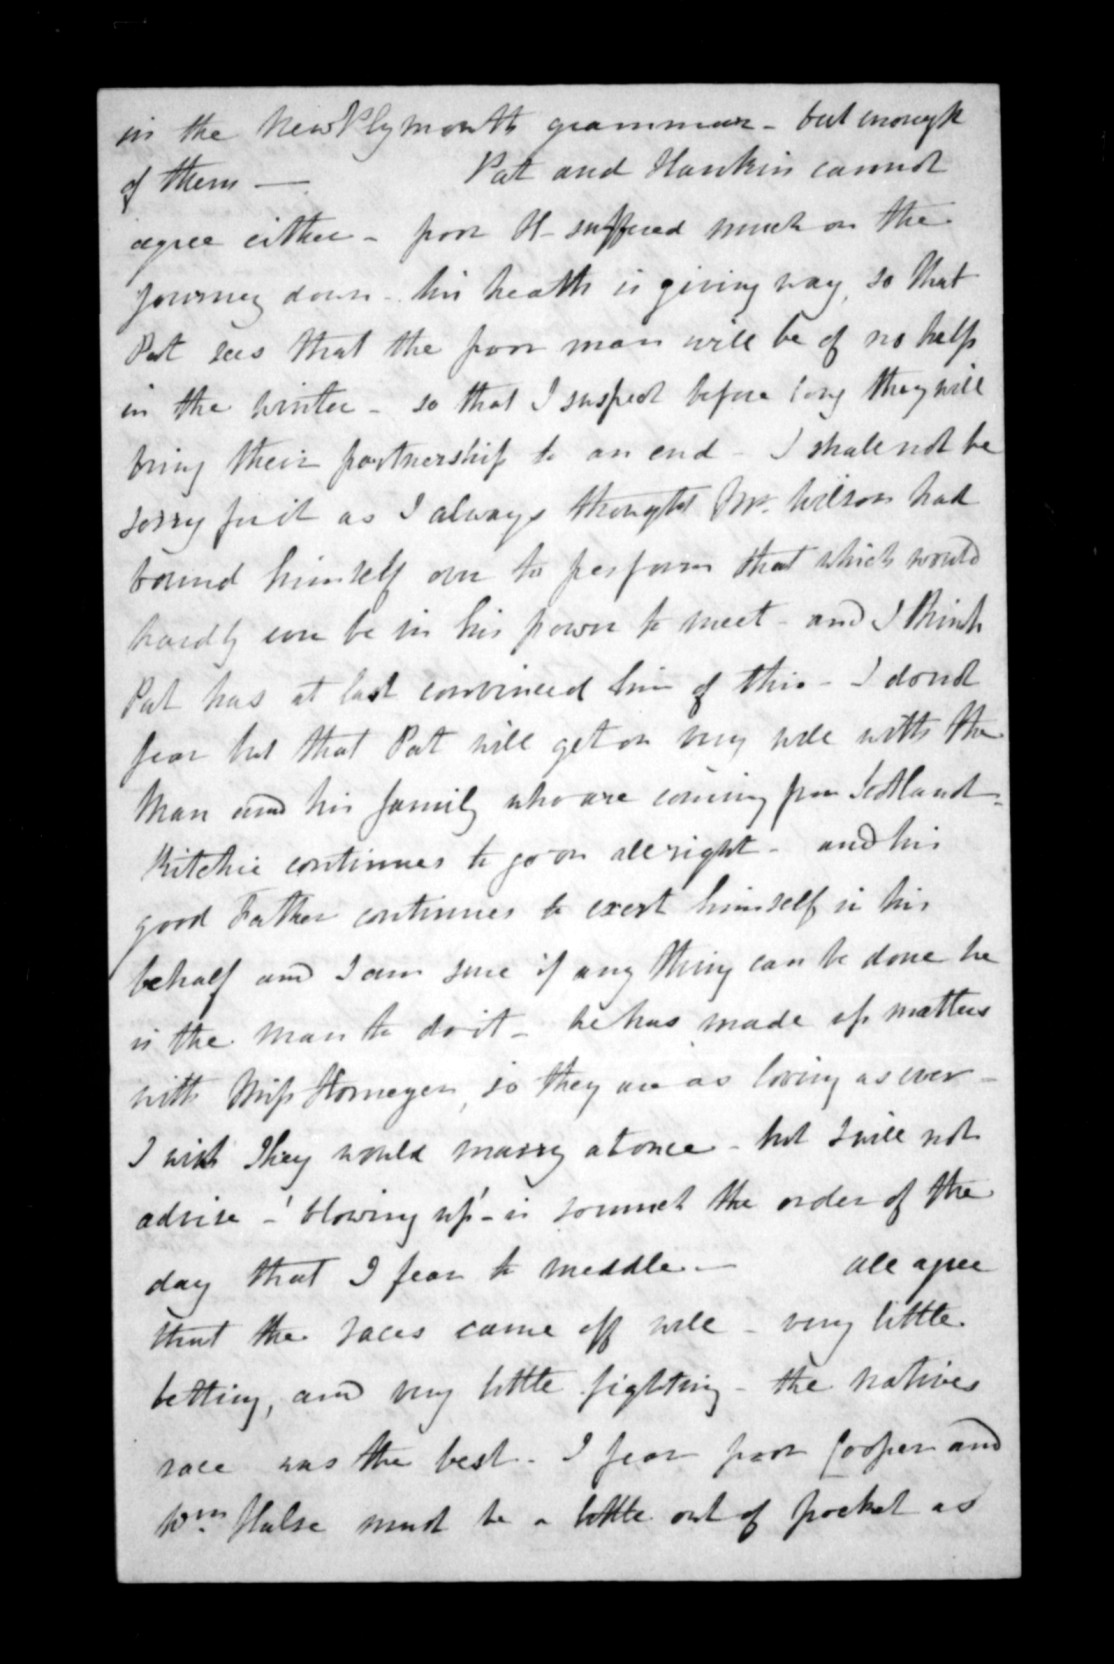 in the New Plymouth grammar - but enough
of them — Pat and Hankin cannot
agree either - poor H - suffered much on the
journey down - his health is giving way, so that
Pat sees that the poor man will be of no help
in the winter - so that I suspect before long they will
bring their partnership to an end - I shall not be
sorry for it as I always thought Mr. Wilson had
bound himself over to perform that which would
hardly ever be in his power to meet - and I think
Pat has at last convinced him of this - I do not
fear but that Pat will get on very well with the
Man and his family who are coming from Scotland -
Ritchie continues to go on all right - and his
good Father continues to exert himself in his
behalf and I am sure if any thing can be done he
is the man to do it - he has made up matters
with Miss Homeyer, so they are as loving as ever -
I wish they would marry at once - but I will not
advise - 'blowing up' - is so much the order of the
day that I fear to meddle — all agree
that the races came off well - very little
betting, and very little fighting - the natives
race was the best - I fear poor Cooper and
Wm. Halse must be a little out of pocket as